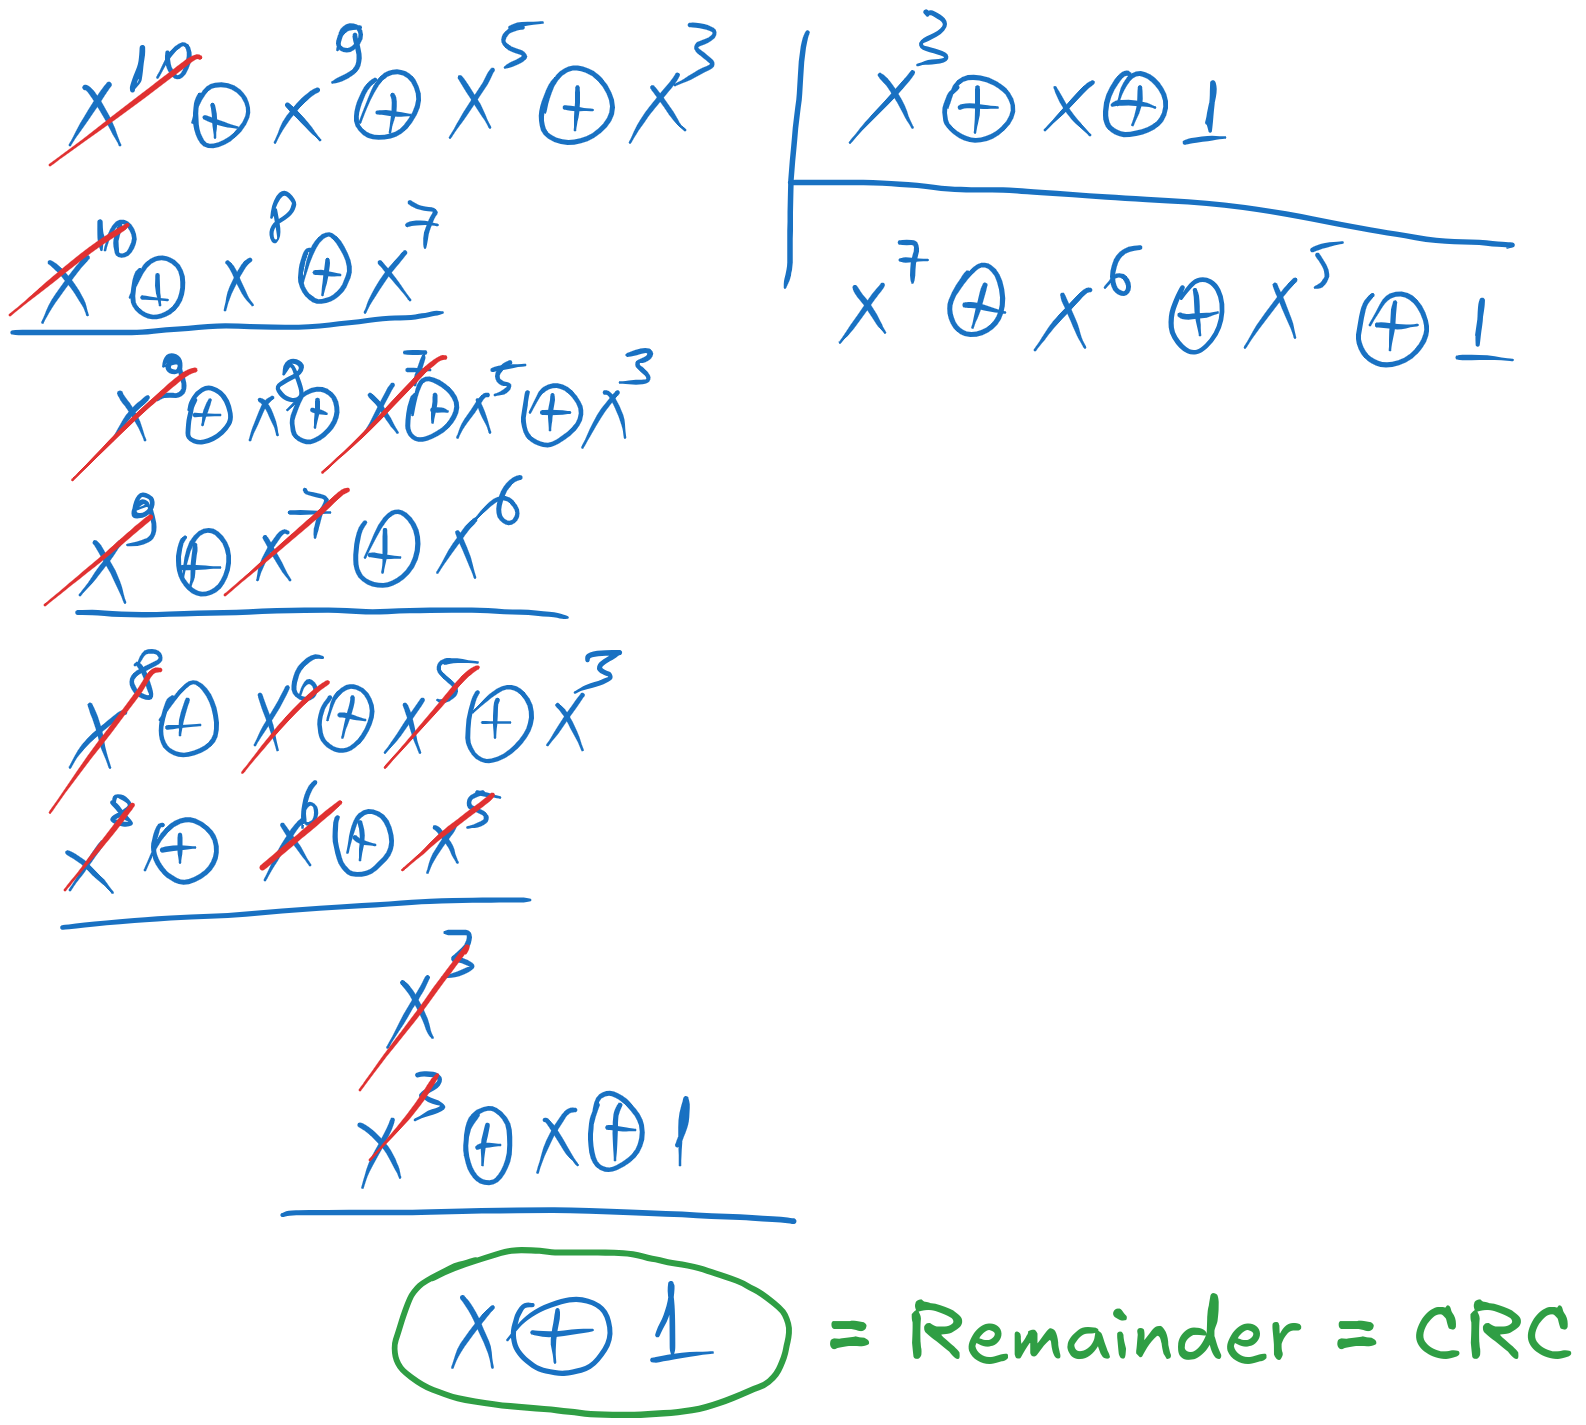 x¹⁰ ⊕ x⁹ ⊕ x⁵ ⊕ x³
x³ ⊕ x ⊕ 1
x⁷ ⊕ x⁶ ⊕ x⁵ ⊕ 1
x¹⁰ ⊕ x⁸ ⊕ x⁷
x⁹ ⊕ x⁸ ⊕ x⁷ ⊕ x⁵ ⊕ x³
x⁹ ⊕ x⁷ ⊕ x⁶
x⁸ ⊕ x⁶ ⊕ x⁵ ⊕ x³
x⁸ ⊕ x⁶ ⊕ x⁵
x³
x³ ⊕ x ⊕ 1
x ⊕ 1 = Remainder = CRC